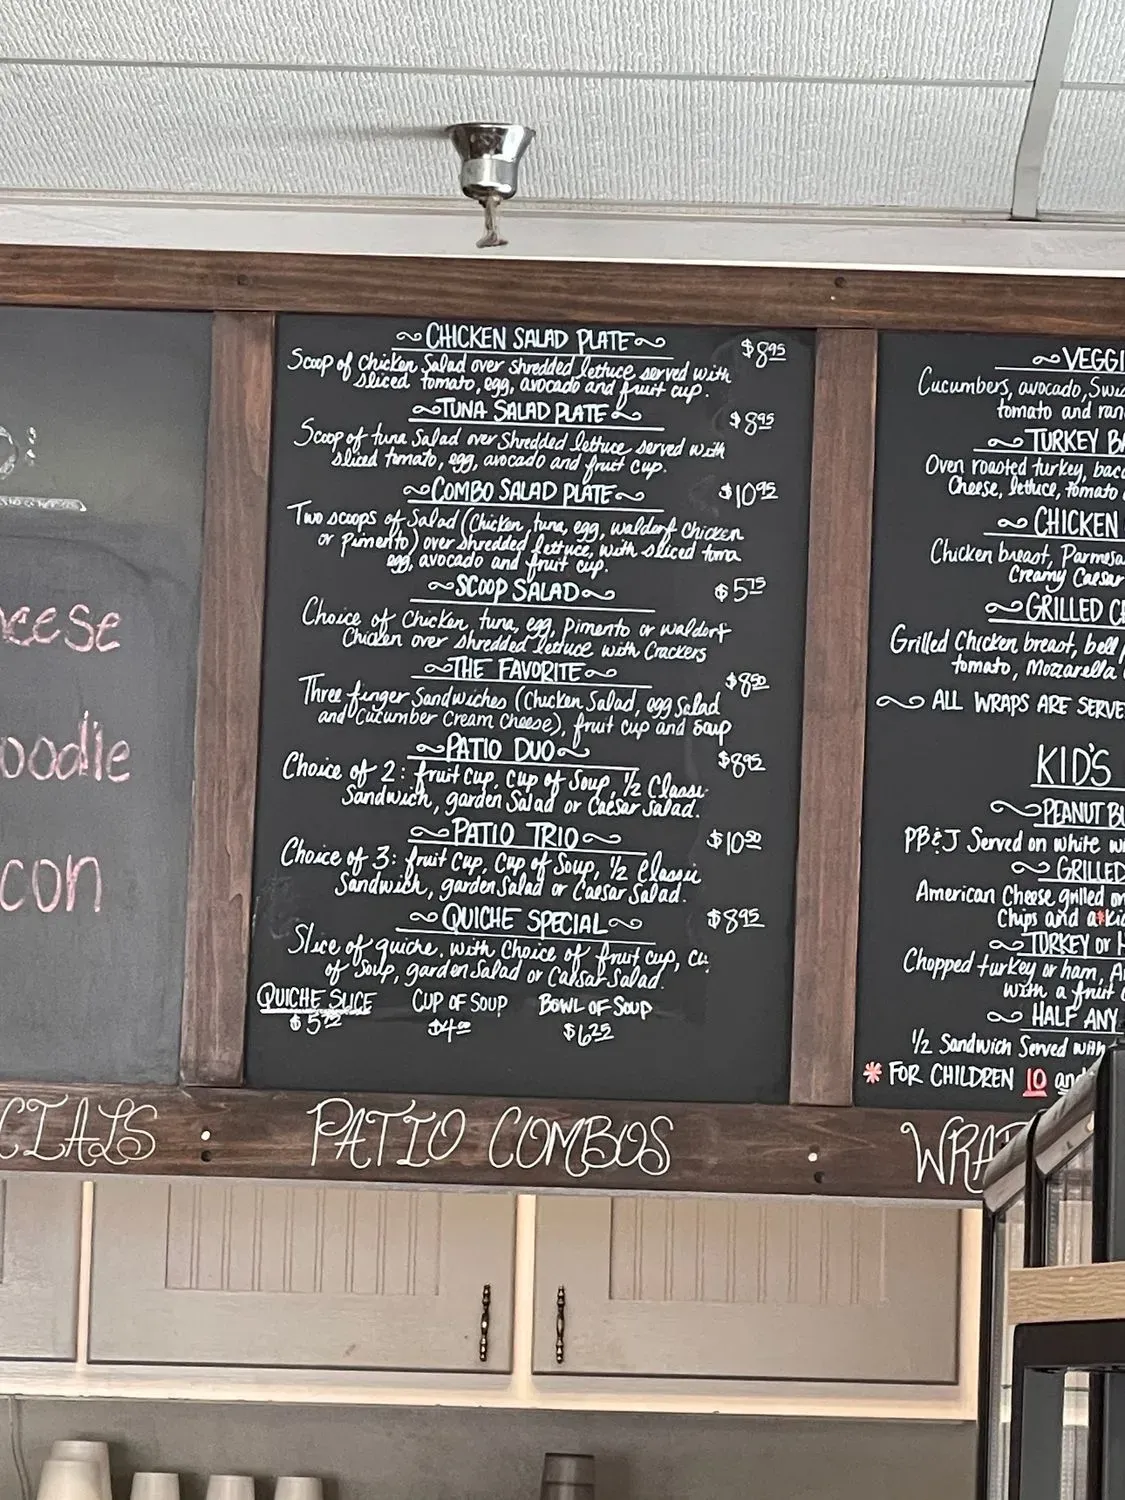 CHICKEN SALAD PLATE $8.95
Scoop of Chicken Salad over shredded lettuce served with
sliced tomato, egg, avocado and fruit cup.
TUNA SALAD PLATE $8.95
Scoop of tuna Salad over Shredded lettuce served with
sliced tomato, egg, avocado and fruit cup.
COMBO SALAD PLATE $10.95
Two scoops of Salad (Chicken, tuna, egg, waldorf Chicken
or Pimento) over shredded lettuce, with sliced toma
egg, avocado and fruit cup.
SCOOP SALAD $5.75
Choice of Chicken, tuna, egg, Pimento or waldorf
Chicken over shredded lettuce with Crackers
THE FAVORITE $8.50
Three finger Sandwiches (Chicken Salad, egg Salad
and Cucumber Cream Cheese), fruit cup and soup
PATIO DUO $8.95
Choice of 2: fruit Cup, Cup of Soup, 1/2 Classi
Sandwich, garden Salad or Caesar Salad.
PATIO TRIO $10.50
Choice of 3: fruit Cup, Cup of Soup, 1/2 Classic
Sandwich, garden Salad or Caesar Salad.
QUICHE SPECIAL $8.95
Slice of quiche, with Choice of fruit cup, cu
of Soup, garden Salad or Caesar Salad.
QUICHE SLICE CUP OF SOUP BOWL OF SOUP
$4.00 $6.25
PATIO COMBOS
eese
oodle
con
CIALS
VEGGI
Cucumbers, avocado, Swis
tomato and ran
TURKEY BA
Oven roasted turkey, baco
Cheese, lettuce, tomato
CHICKEN
Chicken breast, Parmesa
Creamy Caesar
GRILLED C
Grilled Chicken breast, bell
tomato, Mozzarella
ALL WRAPS ARE SERVE
KID'S
PEANUT BU
PB&J Served on white w
GRILLED
American Cheese grilled on
Chips and a *Ki
TURKEY or H
Chopped turkey or ham, A
with a fruit
HALF ANY
1/2 Sandwich Served with
* FOR CHILDREN 10 and
WRA